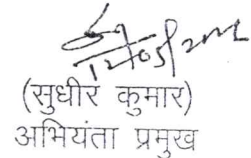 (सुधीर कुमार)
अभियंता प्रमुख